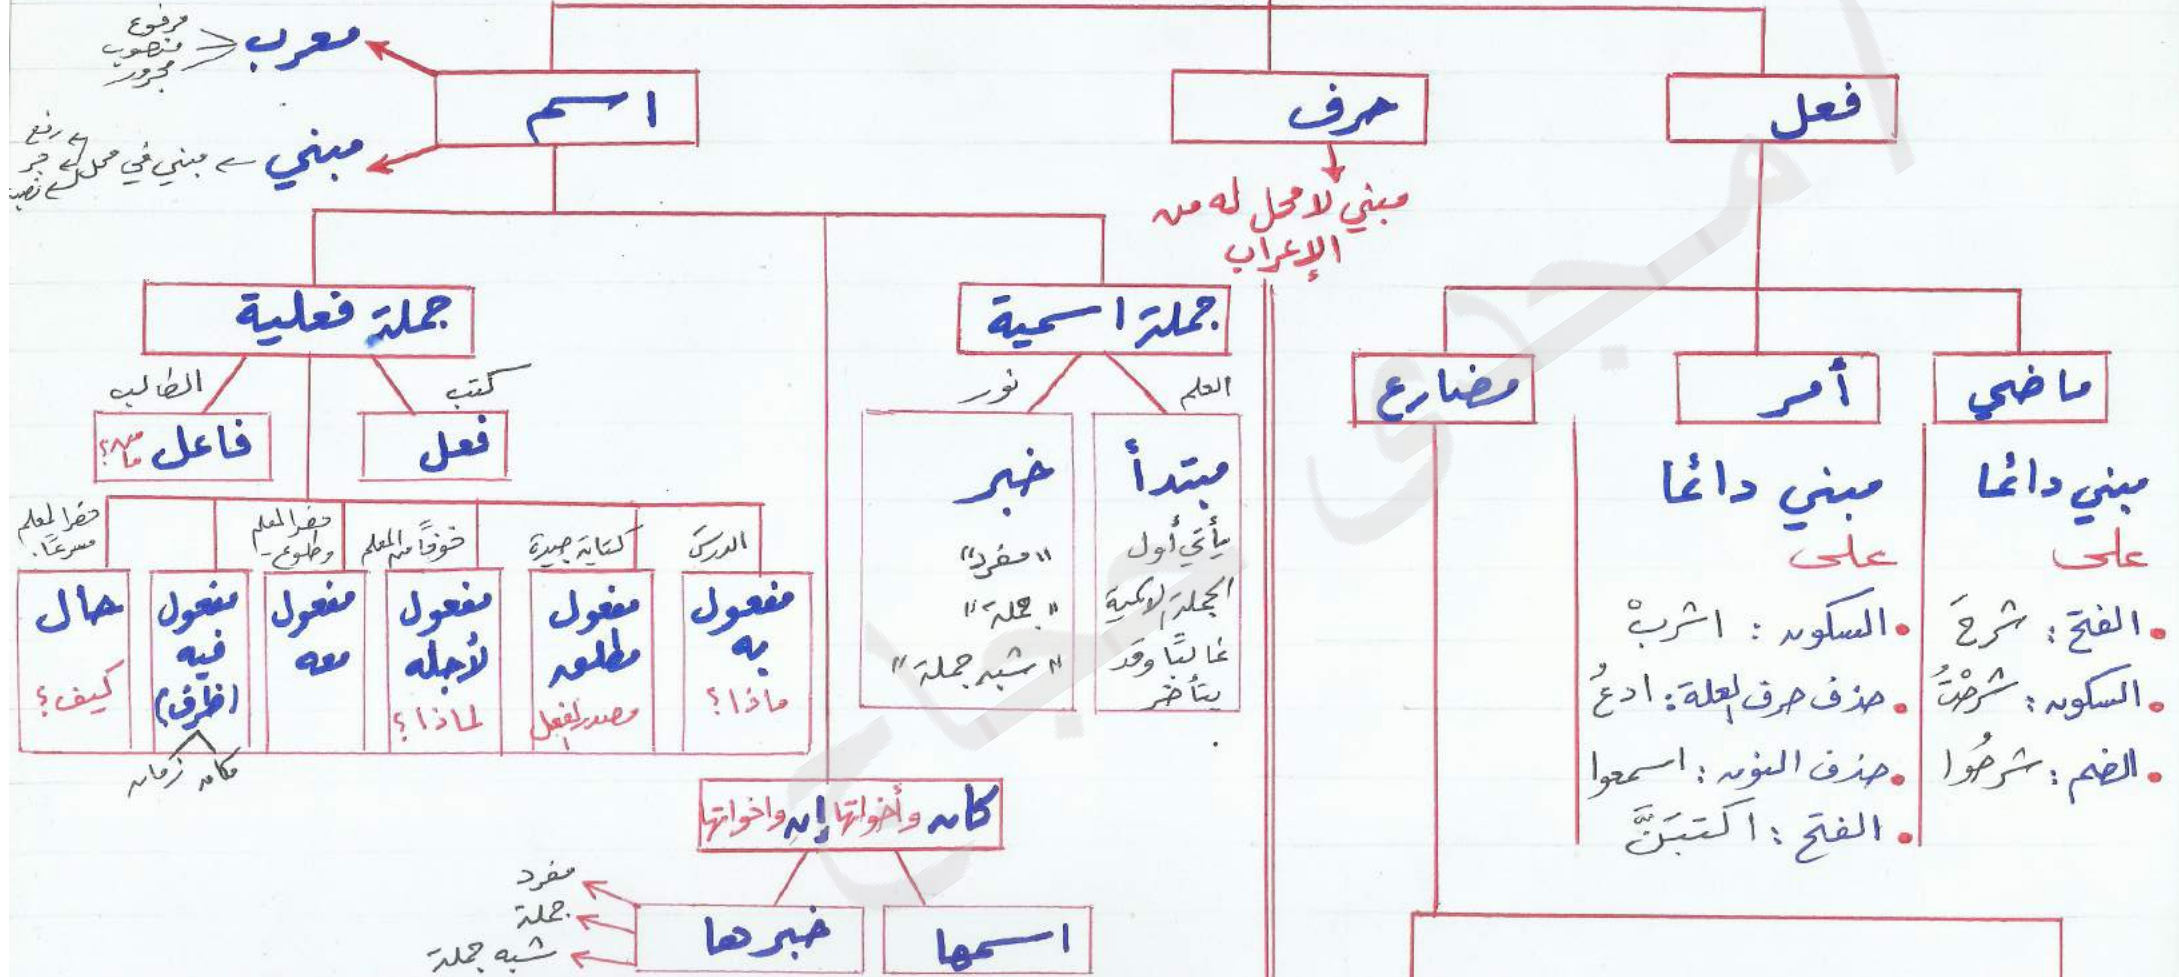 فعل
حرف
اسم
معرب
مرفوع
منصوب
مجرور
مبني ← مبني في محل
رفع
جر
نصب
مبني لا محل له من
الإعراب
ماضي
أمر
مضارع
مبني دائمًا
على
• الفتح : شرحَ
• السكون : شرحْتُ
• الضم : شرحُوا
مبني دائمًا
على
• السكون : اشربْ
• حذف حرف العلة : ادعُ
• حذف النون : اسمعوا
• الفتح : اكتبَنَّ
جملة اسمية
العلم
نور
مبتدأ
يأتي أول
الجملة الاسمية
غالبًا وقد
يتأخر
خبر
"مفرد"
"جملة"
"شبه جملة"
جملة فعلية
كتب
الطالب
فعل
فاعل
من؟
ما؟
الدرسَ
مفعول
به
ماذا؟
كتابة جيدة
مفعول
مطلق
مصدر الفعل
خوفًا من المعلم
مفعول
لأجله
لماذا؟
حضر المعلم
وطلوع
مفعول
معه
مفعول
فيه
(ظرف)
زمان
مكان
حضر المعلم
مسرعًا.
حال
كيف؟
كان وأخواتها إن واخواتها
اسمها
خبرها
مفرد
جملة
شبه جملة
امجدى حجاج